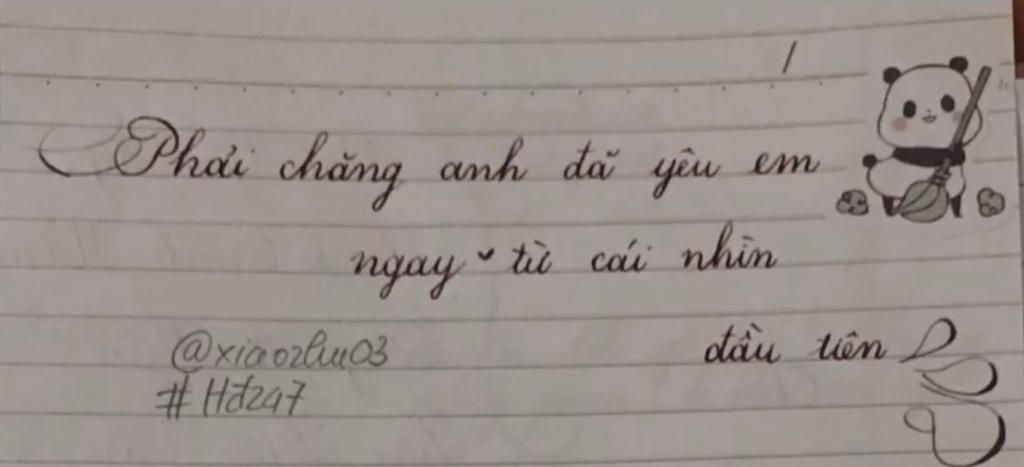 Phải chăng anh đã yêu em
ngay từ cái nhìn
đầu tiên
@xiaozluu03
#Hđ247